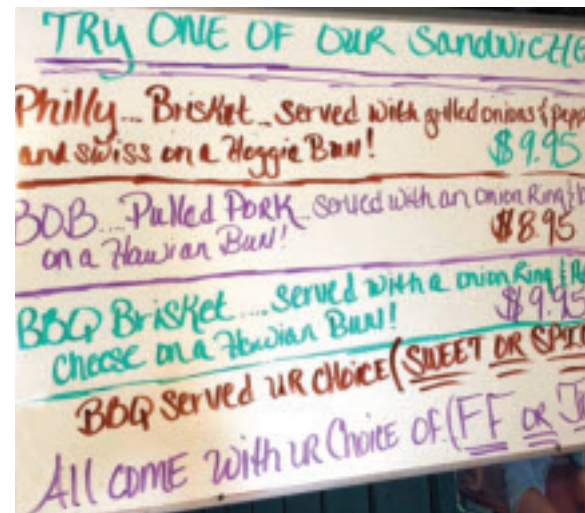 TRY ONE OF OUR SandwicHe
Philly... Brisket.. Served with grilled onions & pepp
and swiss on a Hoggie Bun!
$9.95
BOB... Pulled Pork.. Served with an onion Ring &
on a Hawian Bun!
$8.95
BBQ Brisket.... Served with a onion Ring &
cheese on a Howian Bun!
$9.95
BBQ Served UR CHOICE (SWEET OR SPIC
All COME With UR Choice OF (FF OR